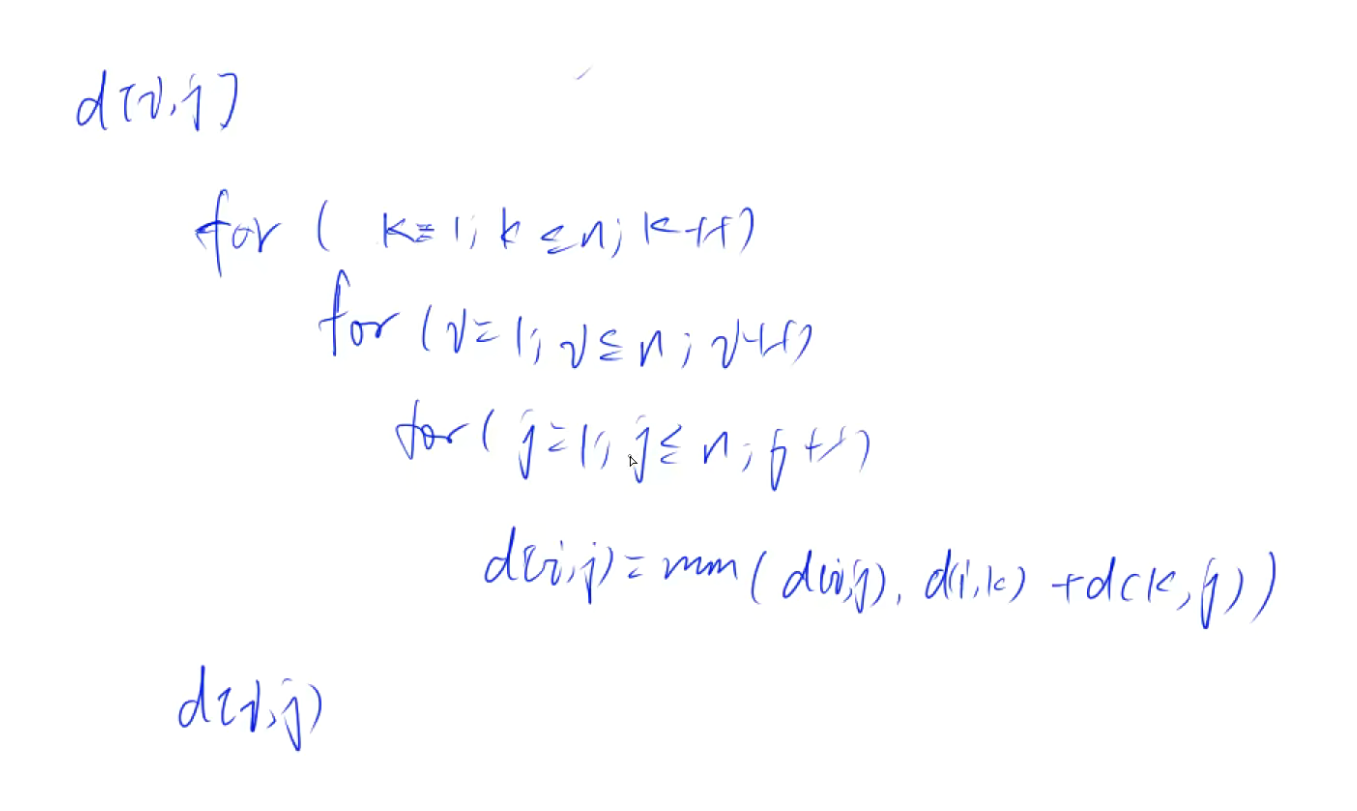 d[i,j]
for ( k=1; k≤n; k++)
for (i=1; i≤n; i++)
for( j=1; j≤n; j++)
d(i,j)=min( d(i,j), d(i,k) +d(k,j))
d(i,j)